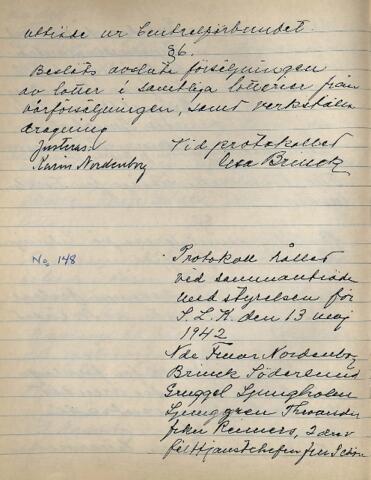 utträde ur Centralförbundet.
§6.
Beslöts avsluta försäljningen
av lotter i samtliga lotterier från
vårförsäljningen, samt verkställa
dragning
Justeras. Vid protokollet
Karin Nordenborg Elsa Brinck
No 148
Protokoll hållet
vid sammanträde
med styrelsen för
S. L. K. den 13 maj
1942
Nde Fruar Nordenborg
Brinck Söderlund
Gruggel Ljungholm
Ljunggren Thorander
frkn Remers,